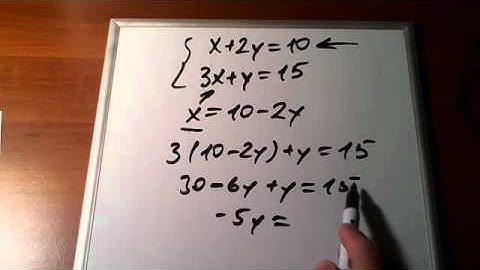 { x+2y=10 ←
3x+y=15
x=10-2y
3(10-2y)+y=15
30-6y+y=15
-5y=